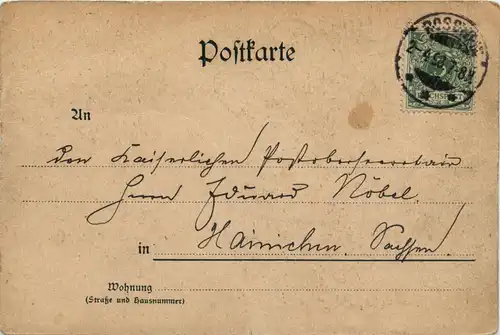 Postkarte
An
den Kaiserlichen Postobersecretair
Herrn Eduard Nöbel
in Hainichen. Sachsen.
Wohnung
(Straße und Hausnummer)